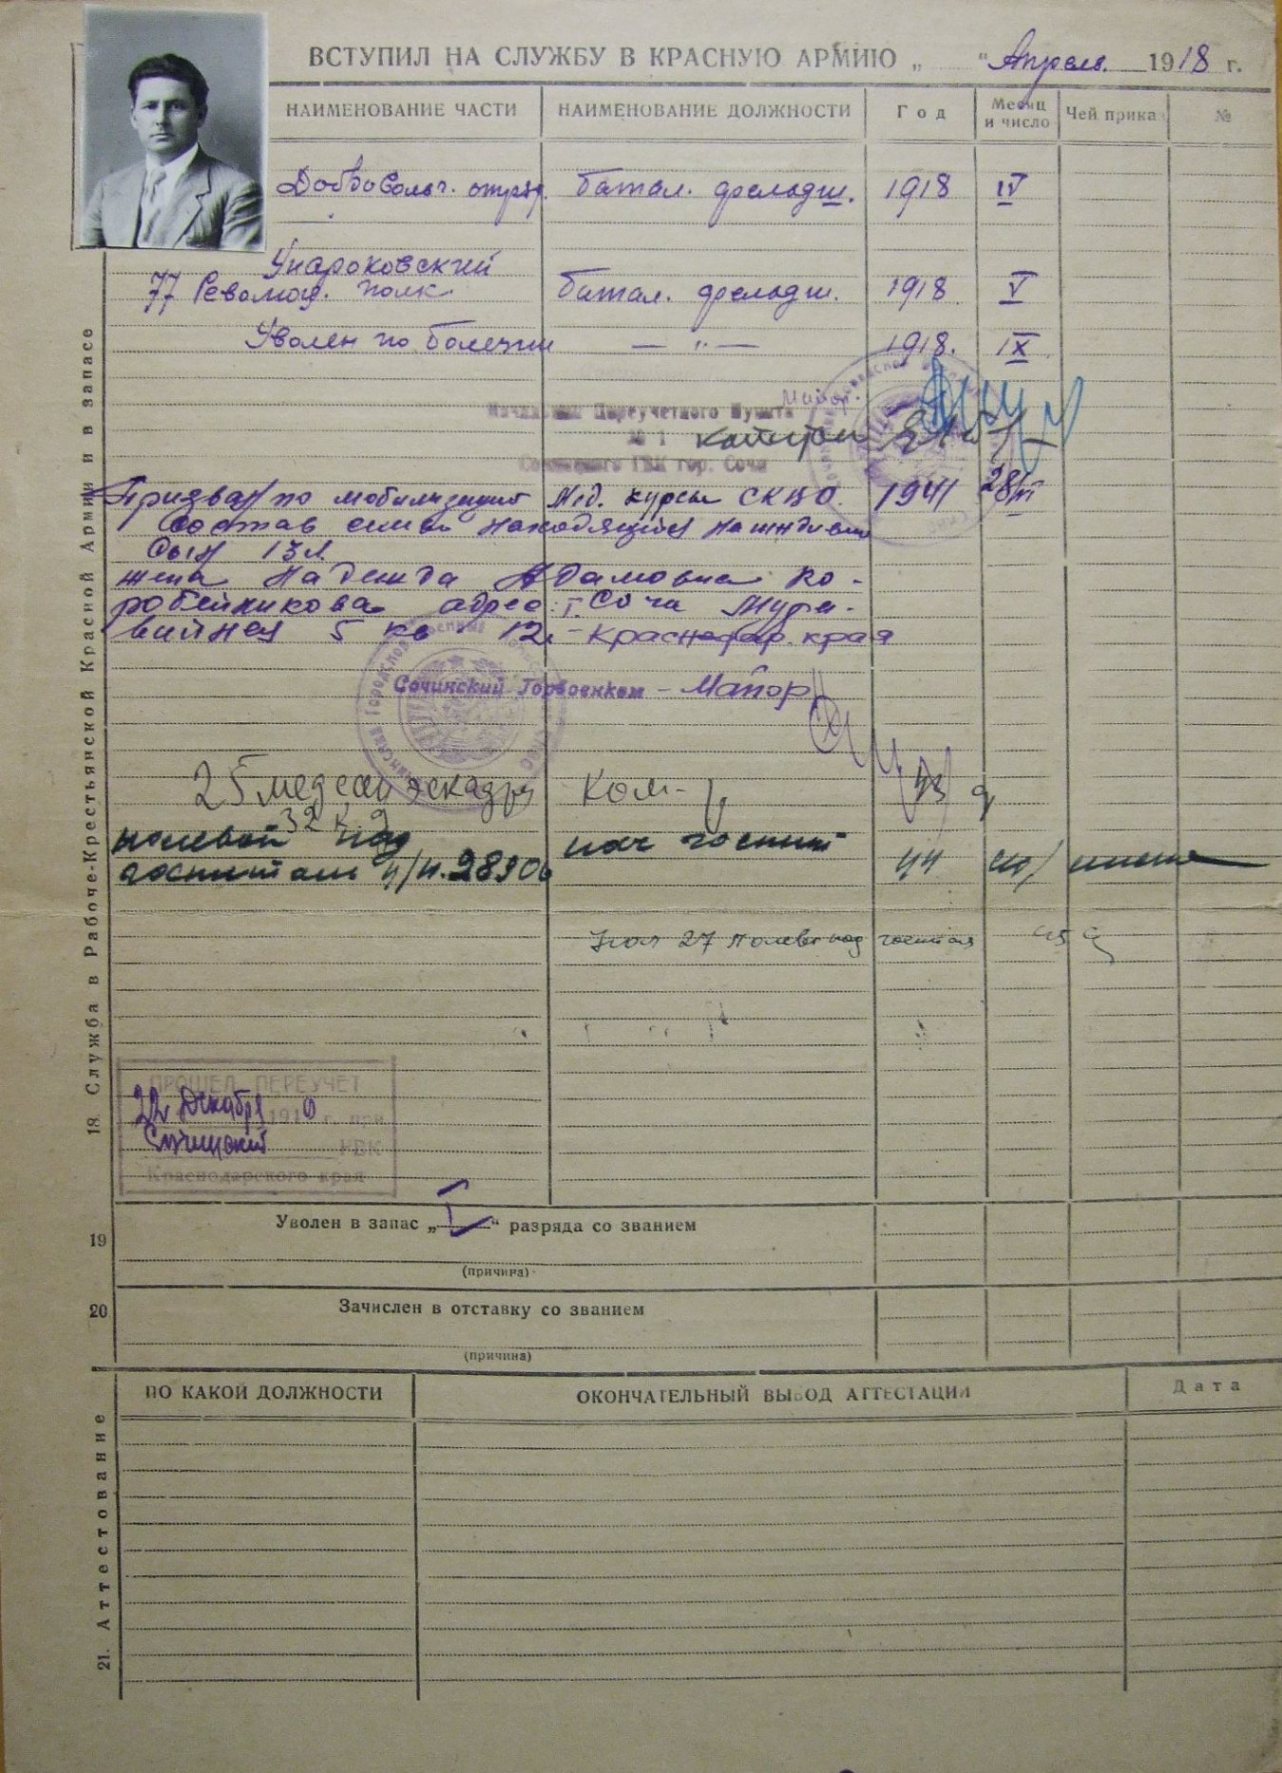 ВСТУПИЛ НА СЛУЖБУ В КРАСНУЮ АРМИЮ „ “ Апрель 1918 г.
НАИМЕНОВАНИЕ ЧАСТИ НАИМЕНОВАНИЕ ДОЛЖНОСТИ Год Месяц и число Чей приказ №
Добровольч. отряд. батал. фельдш. 1918 IV
Унароковский
77 Революц. полк батал. фельдш. 1918 V
Уволен по болезни — „ — 1918. IX
Майор.
Начальник Переучетного Пункта
№ 1 капитан
Сочинского ГВК гор. Сочи
Призван по мобилизации Мед. курсы СКВО. 1941 28/VI
Состав семьи находящийся на иждивении
Сын 13 л.
жена Надежда Адамовна Ко-
робейникова адрес: г. Сочи
5 кв 12 - Краснодар. края
Сочинский Горвоенком - Майор
25 мед сан эскадрон Ком-р 43 г
32 К.Д
полевой под нач госпит
госпиталь п/п. 28906 44
27 полев под госпиталя 45 г
18. Служба в Рабоче-Крестьянской Красной Армии и в запасе
ПРОШЕЛ ПЕРЕУЧЕТ
22 Декабря 1940 г. при
Сочинский РВК
Краснодарского края
19 Уволен в запас „ I “ разряда со званием
(причина)
20 Зачислен в отставку со званием
(причина)
ПО КАКОЙ ДОЛЖНОСТИ ОКОНЧАТЕЛЬНЫЙ ВЫВОД АТТЕСТАЦИИ Дата
21. Аттестование